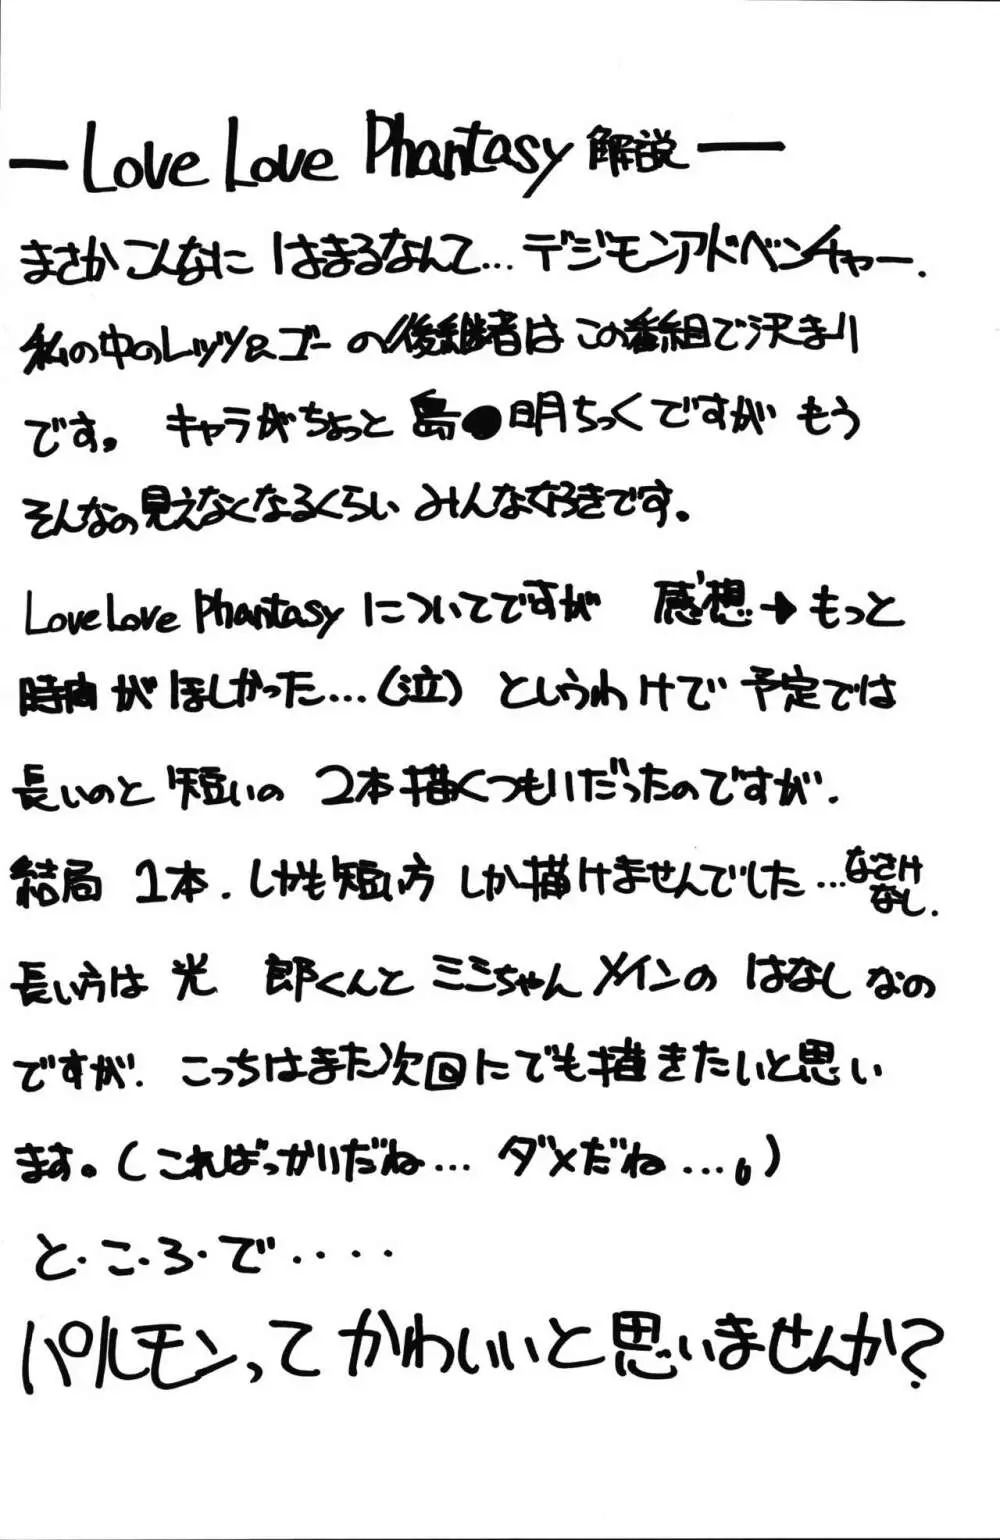 ― Love Love Phantasy 解説 ―
まさかこんなに はまるなんて… デジモンアドベンチャー.
私の中のレッツ&ゴーの後継者は この番組で決まり
です。 キャラがちょっと 島●明ちっくですが もう
そんなの見えなくなるくらい みんな好きです。
Love Love Phantasy についてですが 感想→もっと
時間が ほしかった…(泣) というわけで 予定では
長いのと 短いの 2本描くつもりだったのですが.
結局 1本.しかも短い方 しか描けませんでした…なさけ
なし.
長い方は 光 郎くんと ミミちゃん メインの はなしなの
ですが. こっちはまた次回にでも描きたいと思い
ます。(こればっかりだね… ダメだね…。)
と・こ・ろ・で・・・・
パルモンって かわいいと思いませんか?